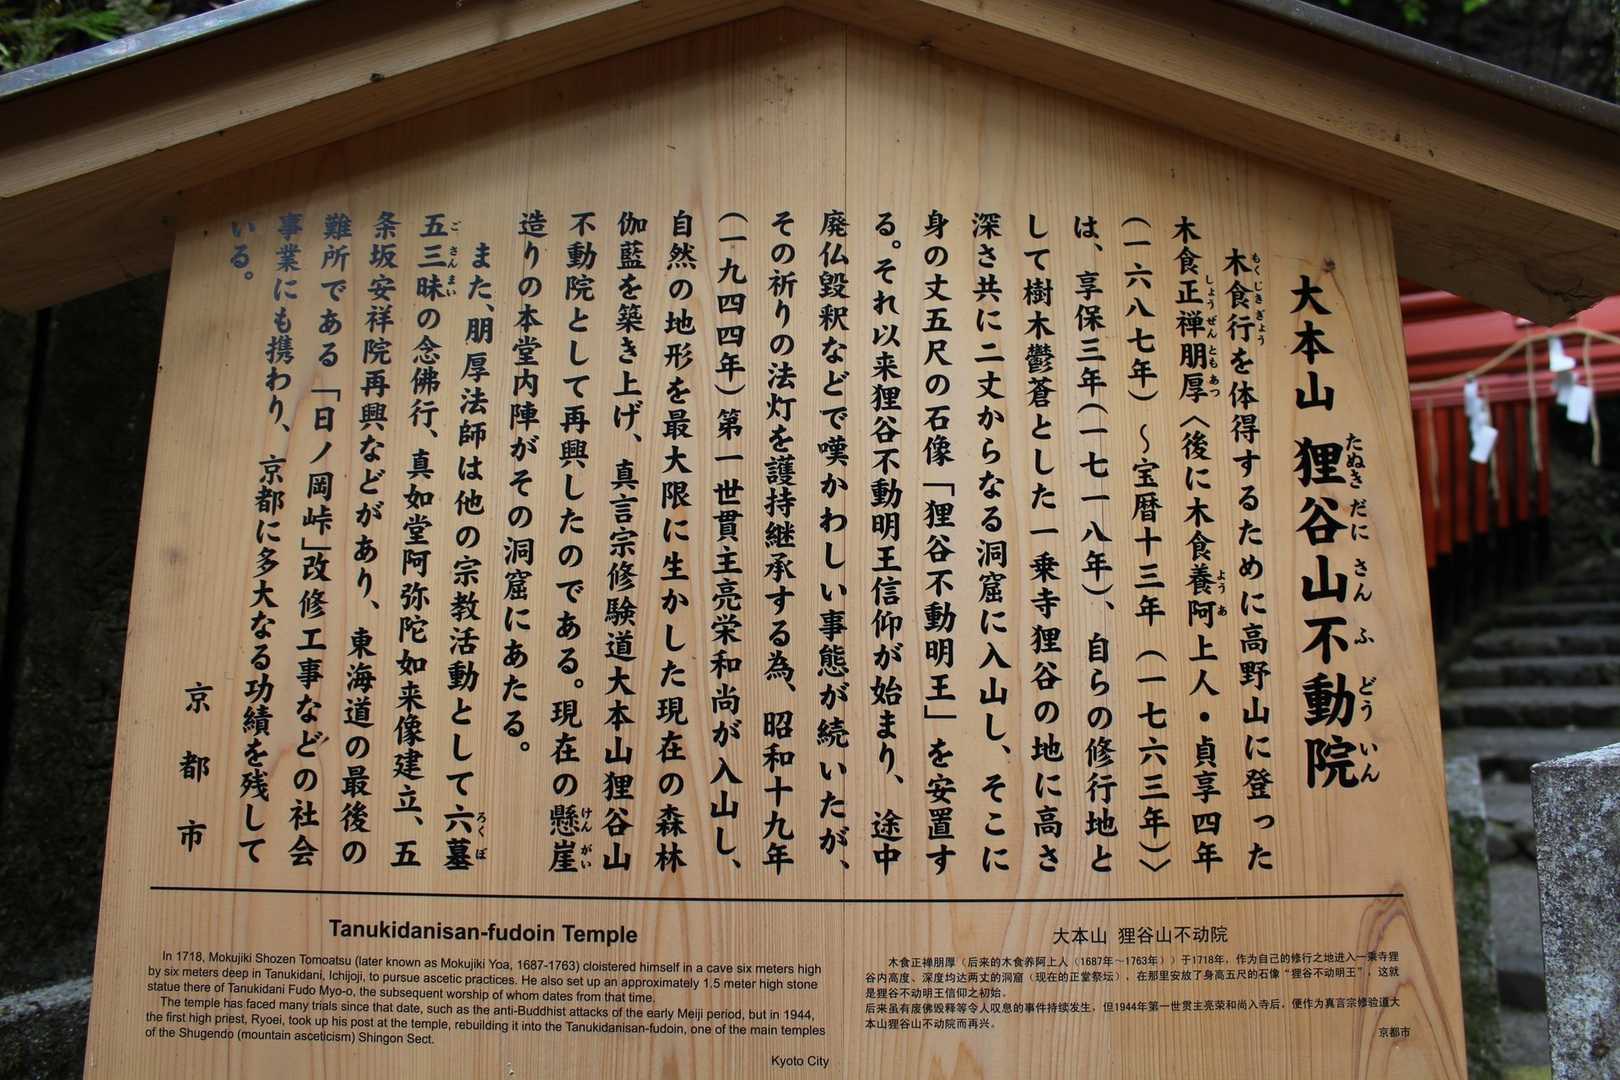 大本山 狸谷山不動院
木食行を体得するために高野山に登った
木食正禅朋厚〈後に木食養阿上人・貞享四年
（一六八七年）～宝暦十三年（一七六三年）〉
は、享保三年（一七一八年）、自らの修行地と
して樹木鬱蒼とした一乗寺狸谷の地に高さ
深さ共に二丈からなる洞窟に入山し、そこに
身の丈五尺の石像「狸谷不動明王」を安置す
る。それ以来狸谷不動明王信仰が始まり、途中
廃仏毀釈などで嘆かわしい事態が続いたが、
その祈りの法灯を護持継承する為、昭和十九年
（一九四四年）第一世貫主亮栄和尚が入山し、
自然の地形を最大限に生かした現在の森林
伽藍を築き上げ、真言宗修験道大本山狸谷山
不動院として再興したのである。現在の懸崖
造りの本堂内陣がその洞窟にあたる。
また、朋厚法師は他の宗教活動として六墓
五三昧の念佛行、真如堂阿弥陀如来像建立、五
条坂安祥院再興などがあり、東海道の最後の
難所である「日ノ岡峠」改修工事などの社会
事業にも携わり、京都に多大なる功績を残して
いる。
京都市
Tanukidanisan-fudoin Temple
In 1718, Mokujiki Shozen Tomoatsu (later known as Mokujiki Yoa, 1687-1763) cloistered himself in a cave six meters high
by six meters deep in Tanukidani, Ichijoji, to pursue ascetic practices. He also set up an approximately 1.5 meter high stone
statue there of Tanukidani Fudo Myo-o, the subsequent worship of whom dates from that time.
The temple has faced many trials since that date, such as the anti-Buddhist attacks of the early Meiji period, but in 1944,
the first high priest, Ryoei, took up his post at the temple, rebuilding it into the Tanukidanisan-fudoin, one of the main temples
of the Shugendo (mountain asceticism) Shingon Sect.
Kyoto City
大本山 狸谷山不动院
木食正禅朋厚（后来的木食养阿上人（1687年～1763年））于1718年，作为自己的修行之地进入一乘寺狸
谷内高度、深度均达两丈的洞窟（现在的正堂祭坛），在那里安放了身高五尺的石像“狸谷不动明王”，这就
是狸谷不动明王信仰之初始。
后来虽有废佛毁释等令人叹息的事件持续发生，但1944年第一世贯主亮荣和尚入寺后，便作为真言宗修验道大
本山狸谷山不动院而再兴。
京都市